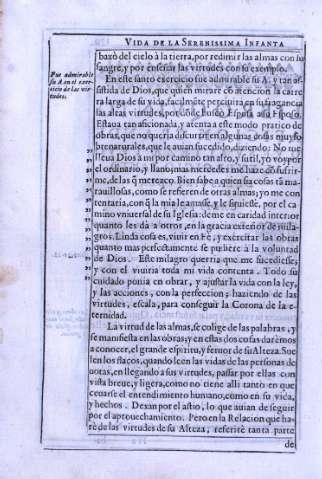 VIDA DE LA SERENISSIMA INFANTA
baxò del cielo à la tierra, por redimir las almas con su
sangre, y por enseñar las virtudes con su exemplo.
Fue admirable
su A. en el exer-
cicio de las vir-
tudes.
En este santo exercicio fue admirable su A. y tan as-
sistida de Dios, que quien mirare co atencion la carre
ra larga de su vida, facilmẽte percivirà en su fragancia
las altas virtudes, por dõde busco España a su Esposo.
Estaua tan aficionada, y atenta a este modo pratico de
obrar, que no queria discurrir en algunas cosas muy so
brenaturales, que le auian sucedido, diziendo: No me
lleua Dios a mi por camino tan alto, y sutil, yo voy por
el ordinario, y llano; mas mercedes me haze con sufrir-
me, de las q̃ merezco. Bien sabe a quien da cosas tã ma-
rauillosas, como se refieren de otras almas; yo me con
tentaria, con q̃ la mia le amasse, y le siguiesse, por el ca
mino vniuersal de su Iglesia: deme en caridad interior
quanto les dà a otros, en la gracia exterior de mila-
gros. Linda cosa es, viuir en Fè, y exercitar las obras
quanto mas perfectamente se pudiere à la voluntad
de Dios. Este milagro querria que me sucediesse,
y con el viuiria toda mi vida contenta. Todo su
cuidado ponia en obrar, y ajustar la vida con la ley,
y las acciones, con la perfeccion; haziendo de las
virtudes, escala, para conseguir la Corona de la e-
ternidad.
La virtud de las almas, se colige de las palabras, y
se manifiesta en las obras; y en estas dos cosas darèmos
a conocer, el grande espiritu, y feruor de su Alteza. Sue
len los flacos, quando leen las vidas de las personas de
uotas, en llegando a sus virtudes, passar por ellas con
vista breue, y ligera, como no tiene alli tanto en que
ceuarse el entendimiento humano, como en su vida,
y hechos. Dexan por el astio, lo que auian de seguir
por el aprouechamiento. Pero en la Relacion que ha-
rè de las virtudes de su Alteza, referirè tanta parte
de